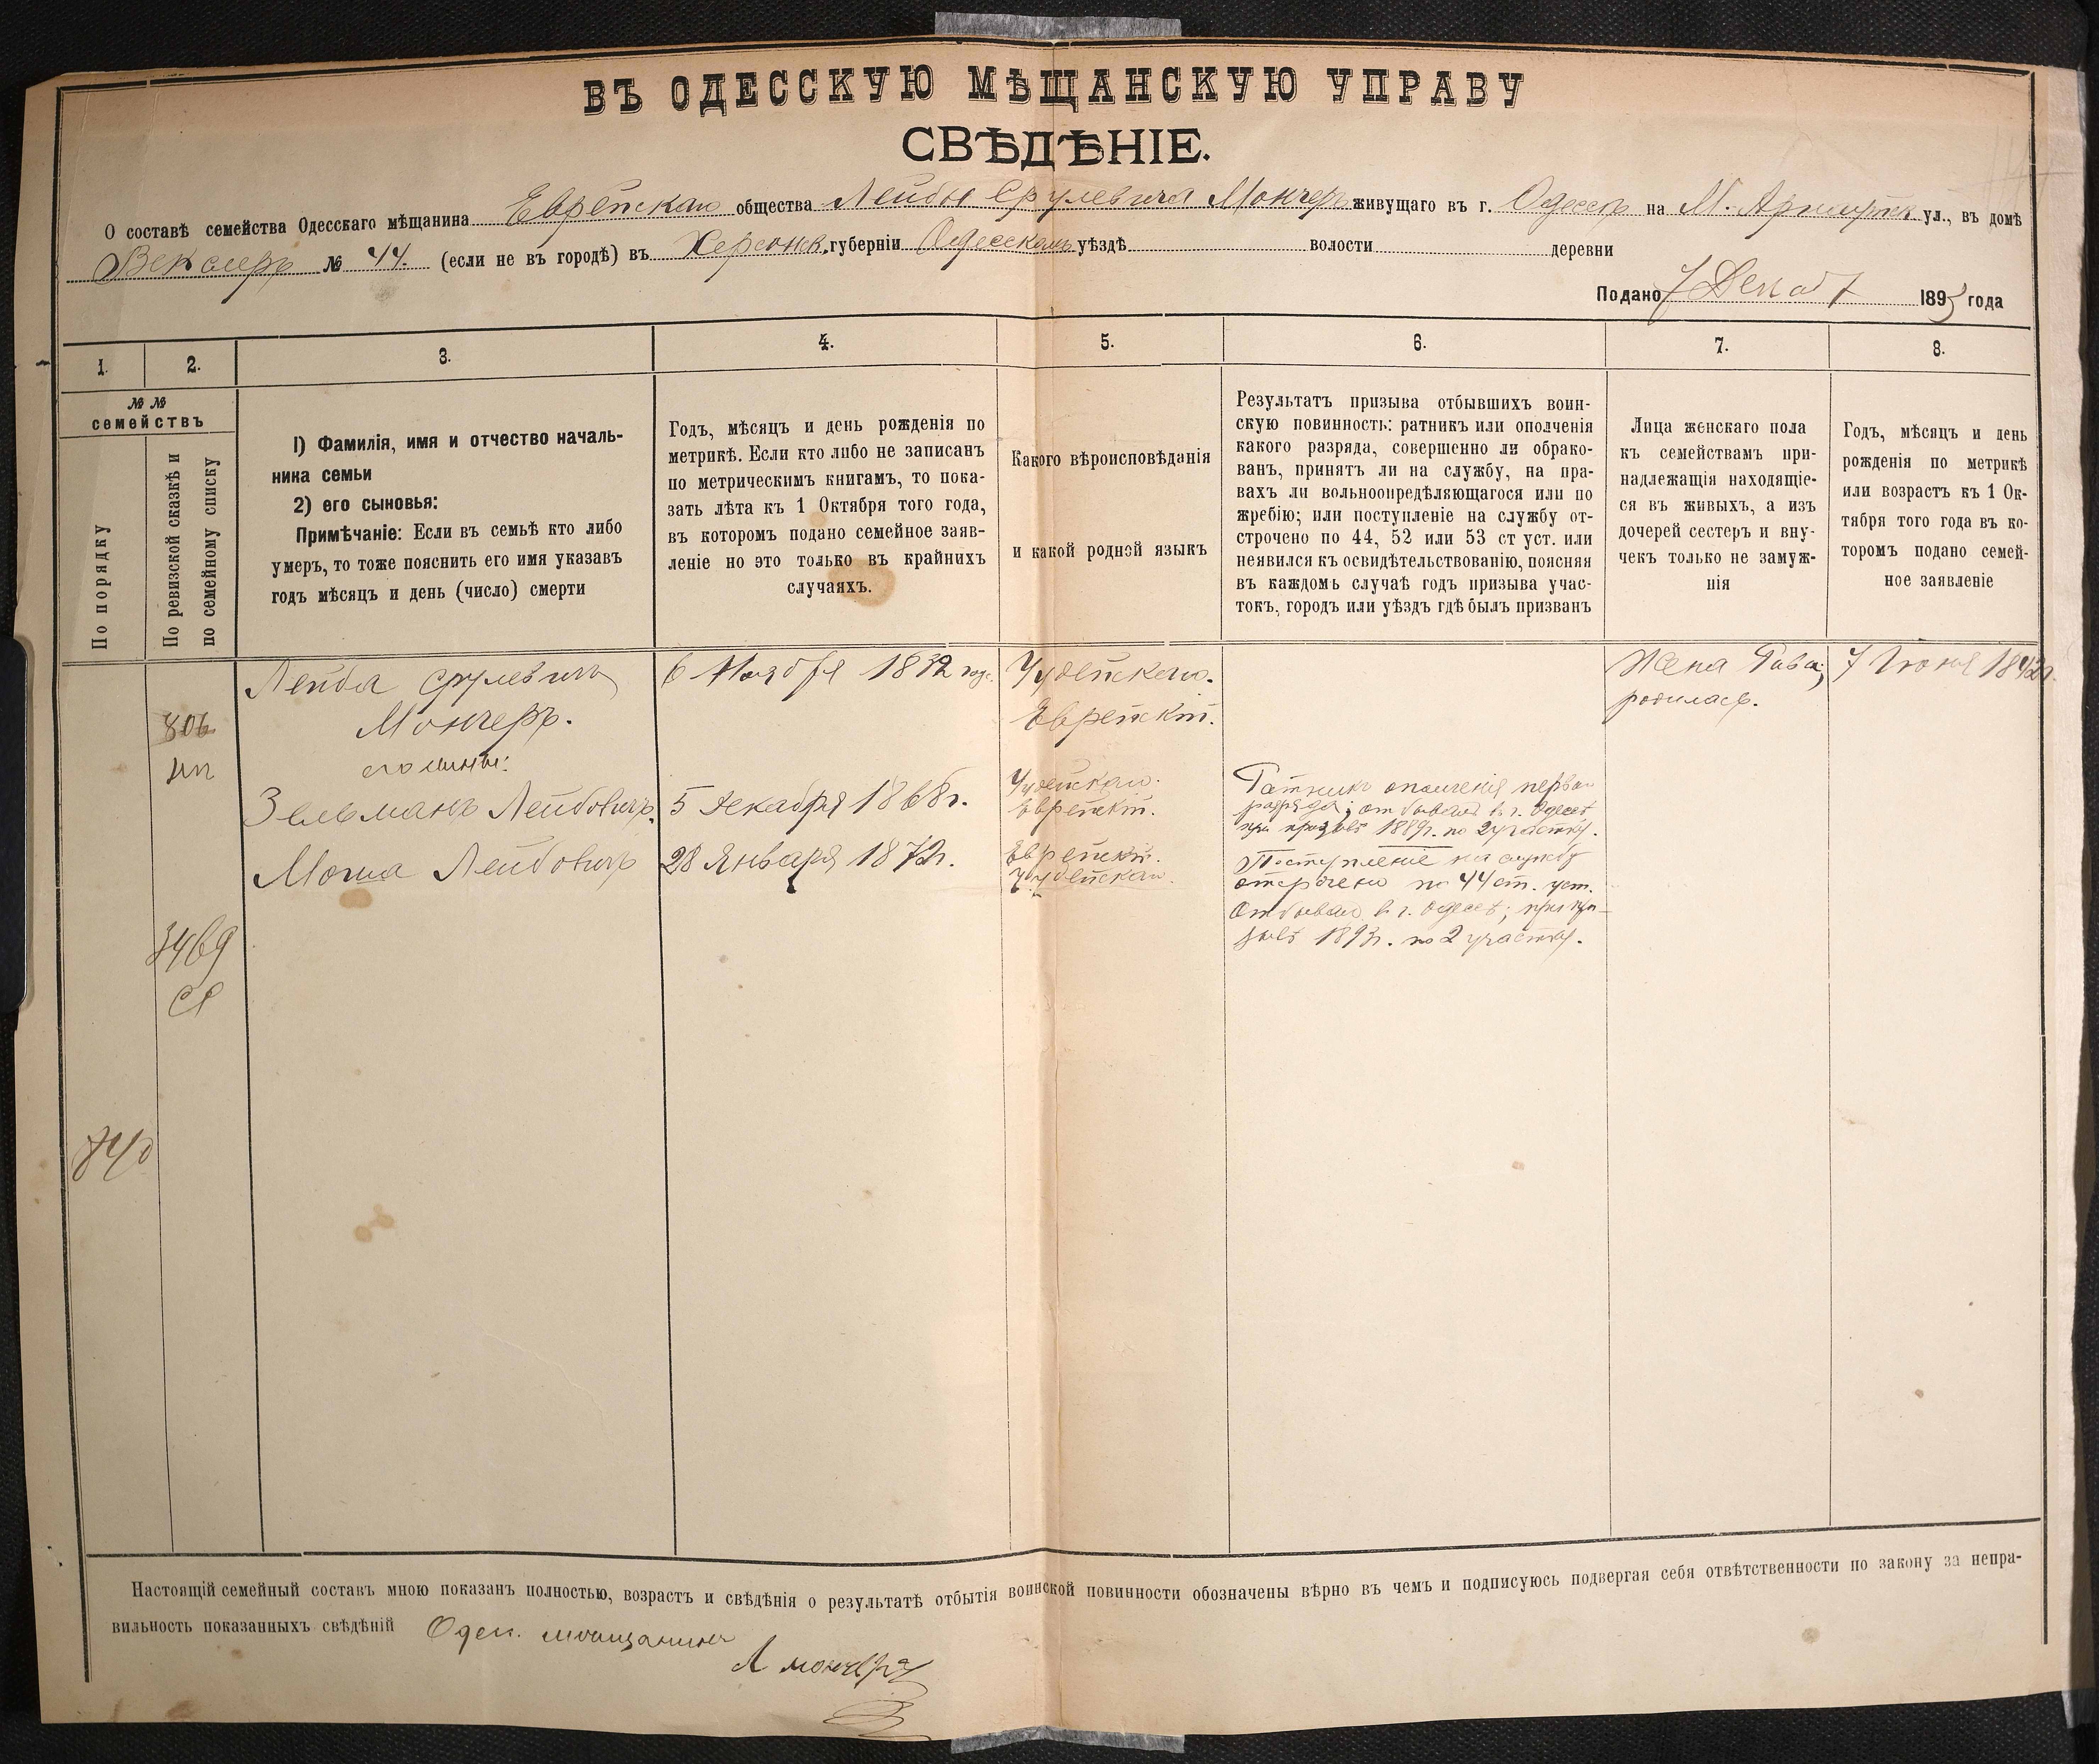 ВЪ ОДЕССКУЮ МѢЩАНСКУЮ УПРАВУ
СВѢДѢНІЕ.
О составѣ семейства Одесскаго мѣщанина Еврейскаго общества Лейбы Срулевича Мончеръ живущаго въ г. Одессѣ на М. Арнаутск ул., въ домѣ
Векслеръ № 44. (если не въ городѣ) въ Херсонск. губерніи Одесскомъ уѣздѣ волости деревни
Подано 7 Декаб 1893 года
1. 2. 3. 4. 5. 6. 7. 8.
№ №
семействъ
По порядку
По ревизской сказкѣ и
по семейному списку
1) Фамилія, имя и отчество началь-
ника семьи
2) его сыновья:
Примѣчаніе: Если въ семьѣ кто либо
умеръ, то тоже пояснить его имя указавъ
годъ мѣсяцъ и день (число) смерти
Годъ, мѣсяцъ и день рожденія по
метрикѣ. Если кто либо не записанъ
по метрическимъ книгамъ, то пока-
зать лѣта къ 1 Октября того года,
въ которомъ подано семейное заяв-
леніе но это только въ крайнихъ
случаяхъ.
Какого вѣроисповѣданія
и какой родной языкъ
Результатъ призыва отбывшихъ воин-
скую повинность: ратникъ или ополченія
какого разряда, совершенно ли обрако-
ванъ, принятъ ли на службу, на пра-
вахъ ли вольноопредѣляющагося или по
жребію; или поступленіе на службу от-
строчено по 44, 52 или 53 ст уст. или
неявился къ освидѣтельствованію, поясняя
въ каждомъ случаѣ годъ призыва учас-
токъ, городъ или уѣздъ гдѣ былъ призванъ
Лица женскаго пола
къ семействамъ при-
надлежащія находящіе-
ся въ живыхъ, а изъ
дочерей сестеръ и вну-
чекъ только не замуж-
нія
Годъ, мѣсяцъ и день
рожденія по метрикѣ
или возрастъ къ 1 Ок-
тября того года въ ко-
торомъ подано семей-
ное заявленіе
806
Лейба Срулевичъ
Мончеръ.
6 Ноября 1832 года
Іудейскаго.
Еврейскій.
Жена Рива;
родилась.
7 Іюня 1842г.
его сыновья:
Зельманъ Лейбовичъ.
5 декабря 1868г.
Іудейскаго.
Еврейскій.
Ратникъ ополченія первого
разряда; отбывалъ въ г. Одессѣ
при призывѣ 1889г. по 2 участку.
Моша Лейбовичъ
28 Января 1872г.
Еврейскій.
Іудейскаго.
Поступленіе на службу
отсрочено по 44 ст. уст.
Отбывалъ въ г. Одессѣ; при при-
зывѣ 1893г. по 2 участку.
3469
840
Настоящій семейный составъ мною показанъ полностью, возрастъ и свѣдѣнія о результатѣ отбытія воинской повинности обозначены вѣрно въ чемъ и подписуюсь подвергая себя отвѣтственности по закону за непра-
вильность показанныхъ свѣдѣній Одес. мѣщанинъ
Л Мончеръ